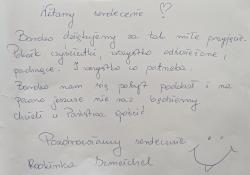 Witamy serdecznie
Bardzo dziękujemy za tak miłe przyjęcie.
Pokoik czyściutki wszystko odświeżone,
pachnące. I wszystko co potrzeba.
Bardzo nam się pobyt podobał i na
pewno jeszcze nie raz będziemy
chcieli u Państwa gościć
Pozdrawiamy serdecznie
Rodzinka